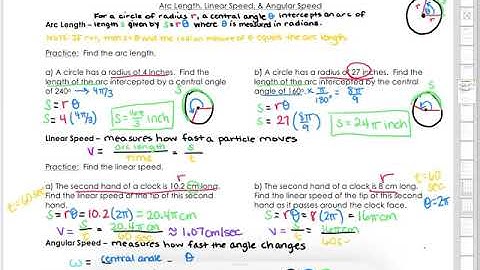 Arc Length, Linear Speed, & Angular Speed
For a circle of radius r, a central angle θ intercepts an arc of
Arc Length – length s given by s = rθ where θ is measured in radians.
NOTE: If r=1, then s=θ and the radian measure of θ equals the arc length.
Practice: Find the arc length.
a) A circle has a radius of 4 inches. Find the length of the arc intercepted by a central angle of 240° → 4π/3
S = rθ
S = 4(4π/3)
S = 16π/3 inch
b) A circle has a radius of 27 inches. Find the length of the arc intercepted by a central angle of 160° × π/180° = 8π/9
S = rθ
S = 27(8π/9)
S = 24π inch
Linear Speed – measures how fast a particle moves
V = arc length/time = s/t
Practice: Find the linear speed.
t=60 sec
a) The second hand of a clock is 10.2 cm long. Find the linear speed of the tip of this second hand.
S = rθ = 10.2(2π) = 20.4π cm
V = s/t = 20.4π cm/60 sec ≈ 1.07 cm/sec
r
t=60 sec
b) The second hand of a clock is 8 cm long. Find the linear speed of the tip of this second hand as it passes around the clock face.
θ=2π
S = rθ = 8(2π) = 16π cm
V = s/t = 16π cm
Angular Speed – measures how fast the angle changes
ω = central angle = θ